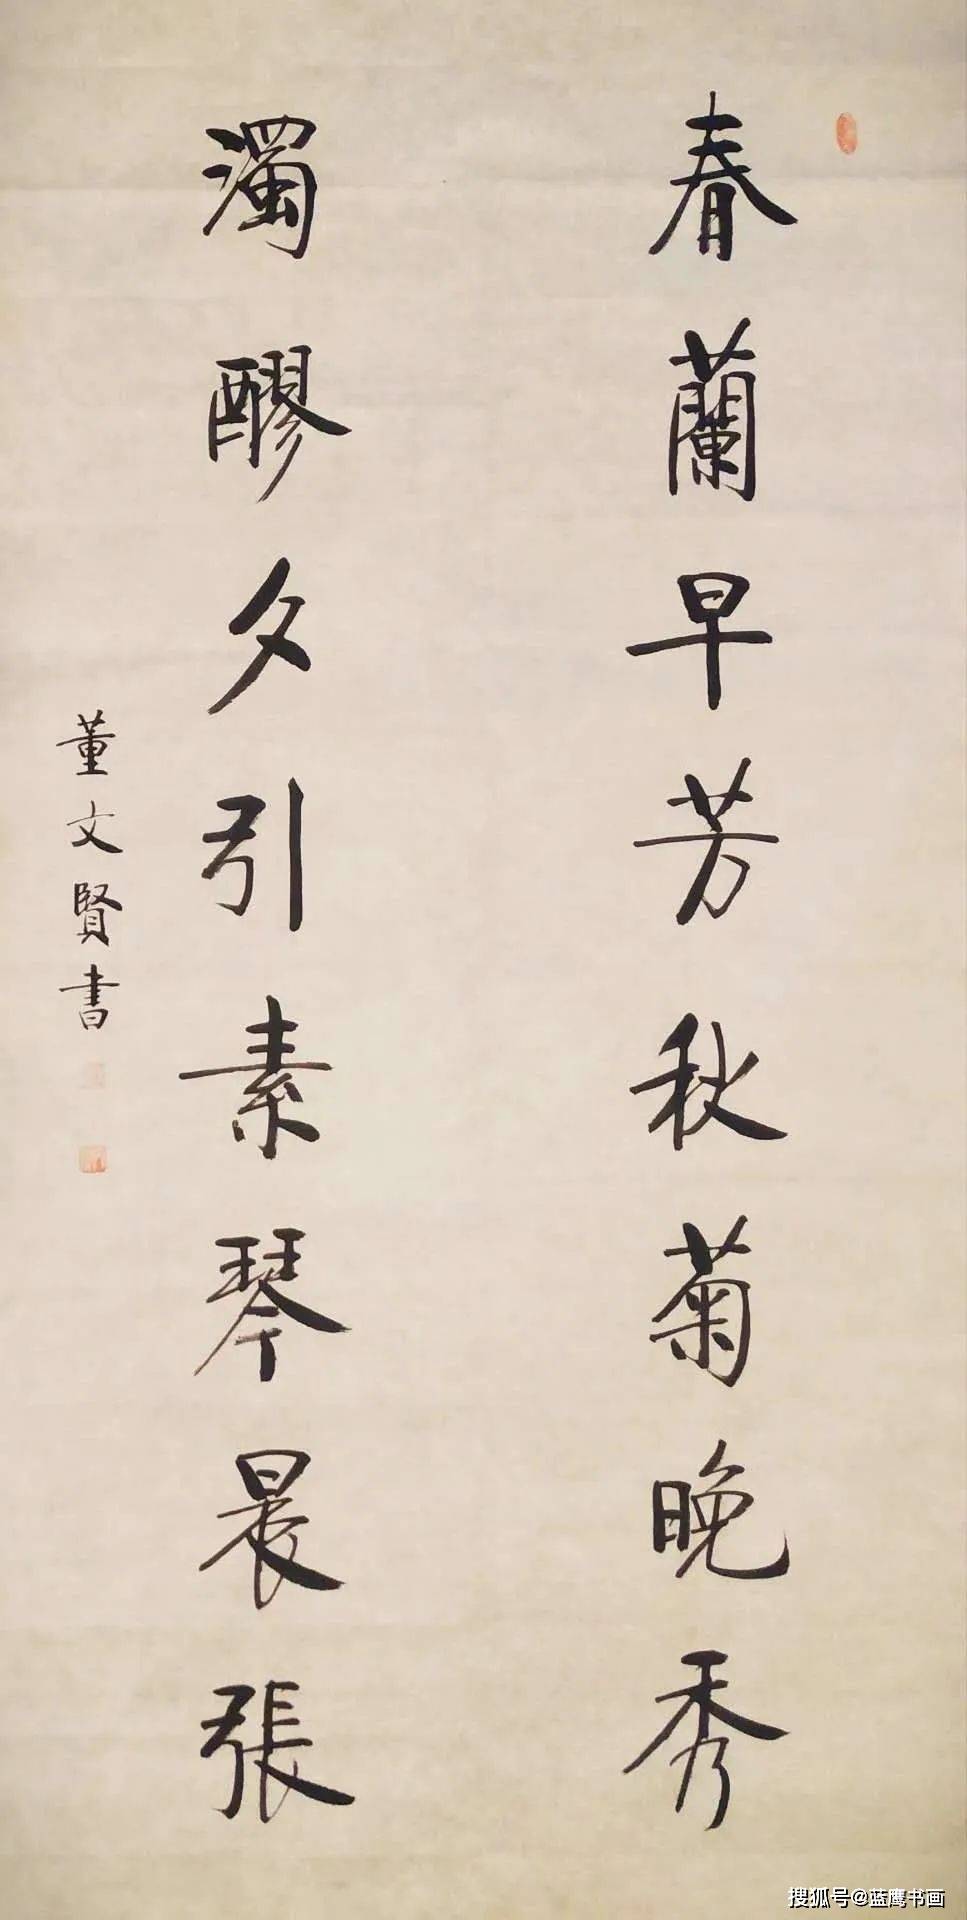 春蘭早芳秋菊晚秀
濁醪夕引素琴晨張
董文賢書
搜狐号@蓝鹰书画